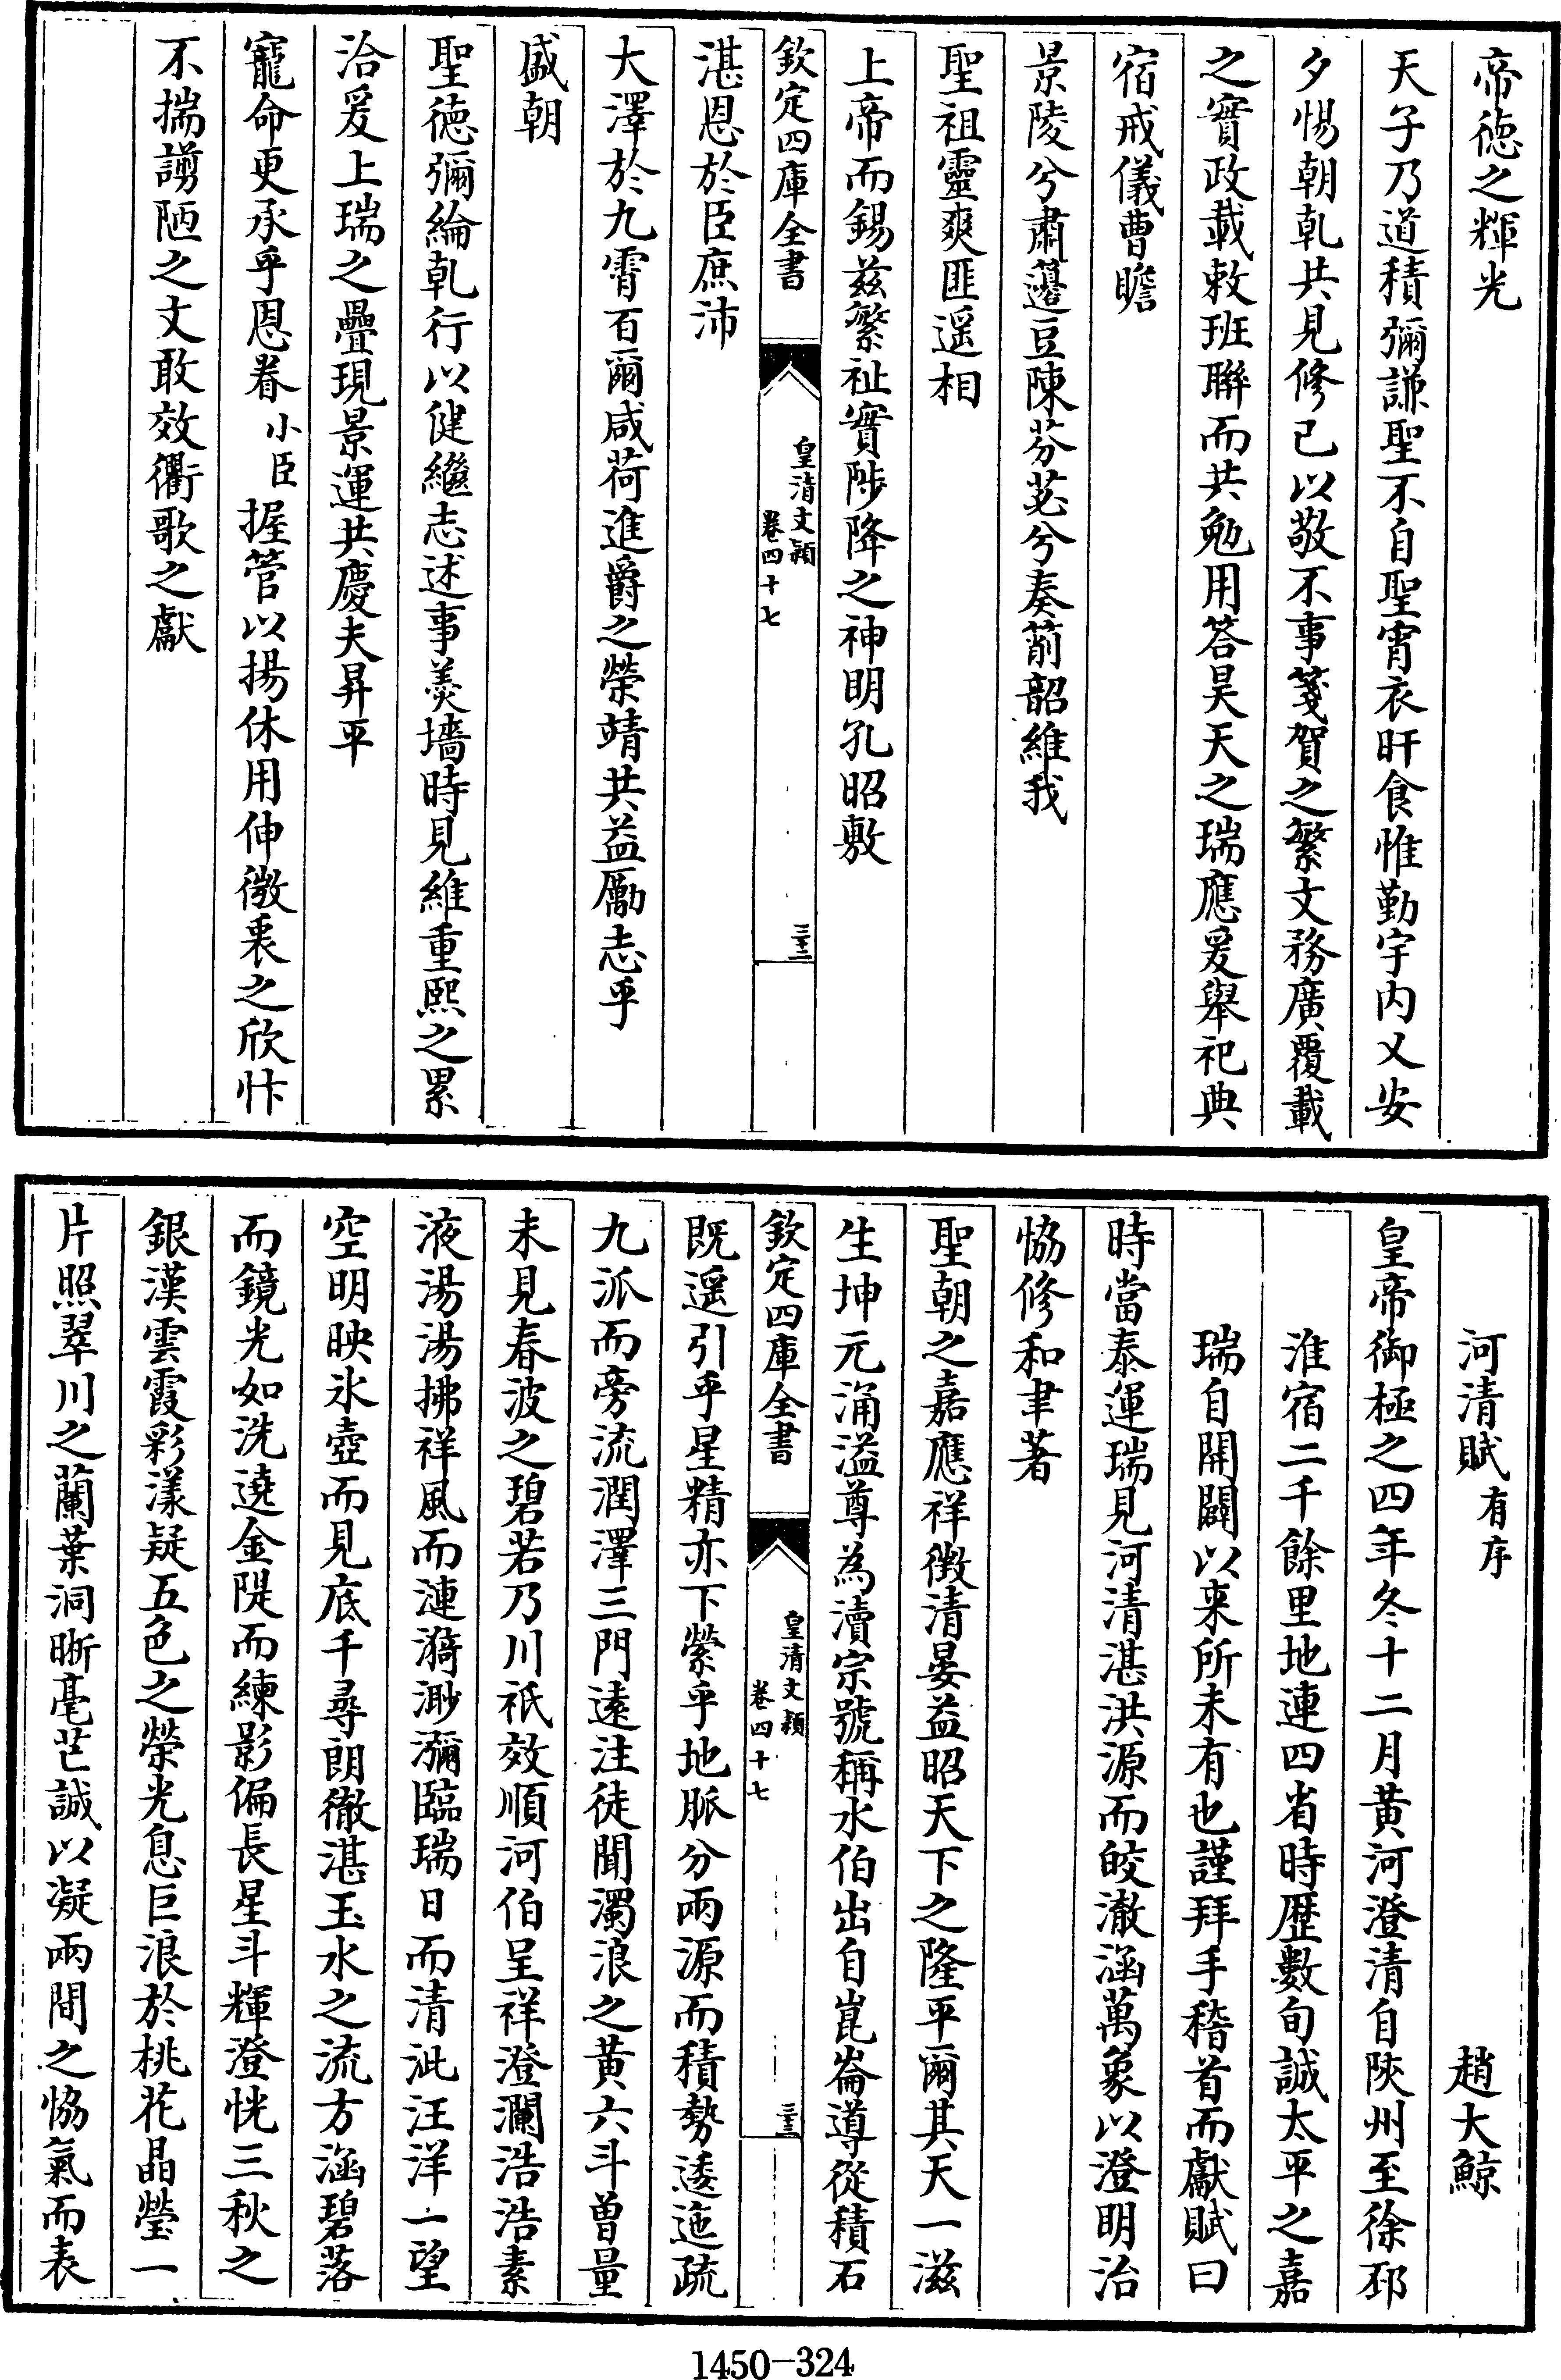 帝德之輝光
天子乃道積彌謙聖不自聖宵衣旰食惟勤宇内乂安
夕惕朝乾共見修己以敬不事箋賀之繁文務廣覆載
之實政載敕班聯而共勉用答昊天之瑞應爰舉祀典
宿戒儀曹瞻
景陵兮肅籩豆陳芬苾兮奏箾韶維我
聖祖靈爽匪遥相
上帝而錫兹繁祉實陟降之神明孔昭敷
欽定四庫全書
皇清文穎
卷四十七
三十二
湛恩於臣庶沛
大澤於九霄百爾咸荷進爵之榮靖共益勵志乎
盛朝
聖德彌綸乾行以健繼志述事羮墻時見維重熙之累
洽爰上瑞之疊現景運共慶夫昇平
寵命更承乎恩眷小臣握管以揚休用伸微衷之欣忭
不揣謭陋之文敢效衢歌之獻
河清賦有序
趙大鯨
皇帝御極之四年冬十二月黄河澄清自陜州至徐邳
淮宿二千餘里地連四省時歴數旬誠太平之嘉
瑞自開闢以来所未有也謹拜手稽首而獻賦曰
時當泰運瑞見河清湛洪源而皎澈涵萬象以澄明治
恊修和聿著
聖朝之嘉應祥徴清晏益昭天下之隆平爾其天一滋
生坤元涌溢尊為瀆宗號稱水伯出自崑崙導從積石
欽定四庫全書
皇清文穎
卷四十七
三十三
既遥引乎星精亦下縈乎地脈分兩源而積勢逶迤疏
九派而旁流潤澤三門遠注徒聞濁浪之黄六斗曽量
未見春波之碧若乃川祇效順河伯呈祥澄瀾浩浩素
液湯湯拂祥風而漣漪渺瀰臨瑞日而清泚汪洋一望
空明映氷壺而見底千尋朗徹湛玉水之流方涵碧落
而鏡光如洗遶金隄而練影偏長星斗輝澄恍三秋之
銀漢雲霞彩漾疑五色之榮光息巨浪於桃花晶瑩一
片照翠川之蘭葉洞晰毫芒誠以凝兩間之恊氣而表
1450-324